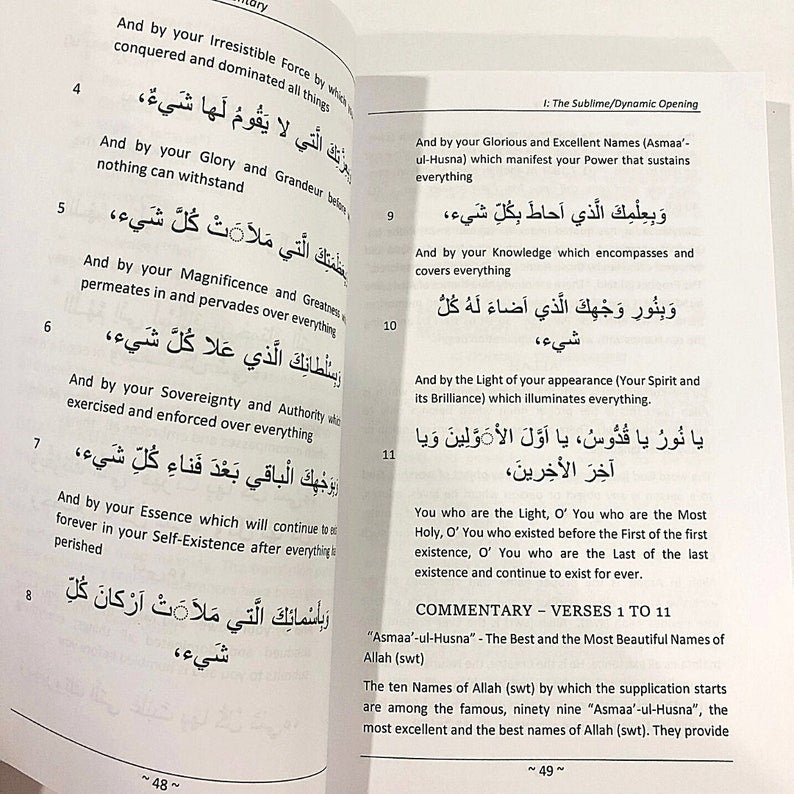 And by your Irresistible Force by which
conquered and dominated all things
4
وَبِعِزَّتِكَ الَّتي لا يَقُومُ لَها شَيءٌ،
And by your Glory and Grandeur before
nothing can withstand
5
وَبِعَظَمَتِكَ الَّتي مَلَاَتْ كُلَّ شَيء،
And by your Magnificence and Greatness
permeates in and pervades over everything
6
وَبِسُلْطانِكَ الَّذي عَلا كُلَّ شَيء،
And by your Sovereignty and Authority which
exercised and enforced over everything
7
وَبِوَجْهِكَ الْباقي بَعْدَ فَناءِ كُلِّ شَيء،
And by your Essence which will continue to
forever in your Self-Existence after everything
perished
8
وَبِأَسْمائِكَ الَّتي مَلَاَتْ اَرْكانَ كُلِّ
شَيء،
~ 48 ~
I: The Sublime/Dynamic Opening
And by your Glorious and Excellent Names (Asmaa’-
ul-Husna) which manifest your Power that sustains
everything
9
وَبِعِلْمِكَ الَّذي اَحاطَ بِكُلِّ شَيء،
And by your Knowledge which encompasses and
covers everything
10
وَبِنُورِ وَجْهِكَ الَّذي اَضاءَ لَهُ كُلُّ
شيء،
And by the Light of your appearance (Your Spirit and
its Brilliance) which illuminates everything.
11
يا نُورُ يا قُدُّوسُ، يا اَوَّلَ الْاَوَّلِينَ وَيا
آخِرَ الْآخِرينَ،
You who are the Light, O’ You who are the Most
Holy, O’ You who existed before the First of the first
existence, O’ You who are the Last of the last
existence and continue to exist for ever.
COMMENTARY – VERSES 1 TO 11
“Asmaa’-ul-Husna” - The Best and the Most Beautiful Names of
Allah (swt)
The ten Names of Allah (swt) by which the supplication starts
are among the famous, ninety nine “Asmaa’-ul-Husna”, the
most excellent and the best names of Allah (swt). They provide
~ 49 ~